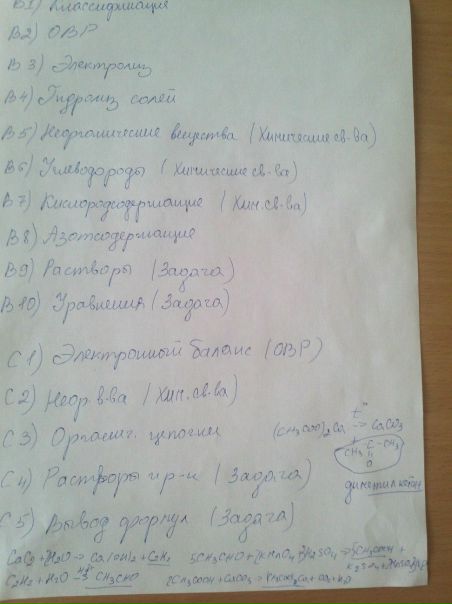 В1) Классификация
В2) ОВР
В3) Электролиз
В4) Гидролиз солей
В5) Неорганические вещества (Химические св-ва)
В6) Углеводороды (Химические св-ва)
В7) Кислородсодержащие (Хим. св-ва)
В8) Азотсодержащие
В9) Растворы (Задача)
В10) Уравнения (Задача)
С1) Электронный баланс (ОВР)
С2) Неор. в-ва (Хим. св-ва)
С3) Органич. цепочки
(CH3COO)2Ca t° → CaCO3
+
CH3-C-CH3
O
С4) Растворы и р-и (Задача)
диметилкетон
С5) Вывод формул (Задача)
CaC2 + H2O → Ca(OH)2 + C2H2
5CH3CHO + 2KMnO4 + 3H2SO4 → 5CH3COOH +
C2H2 + H2O → CH3CHO
2CH3COOH + CaCO3 → (CH3COO)2Ca + CO2 + H2O